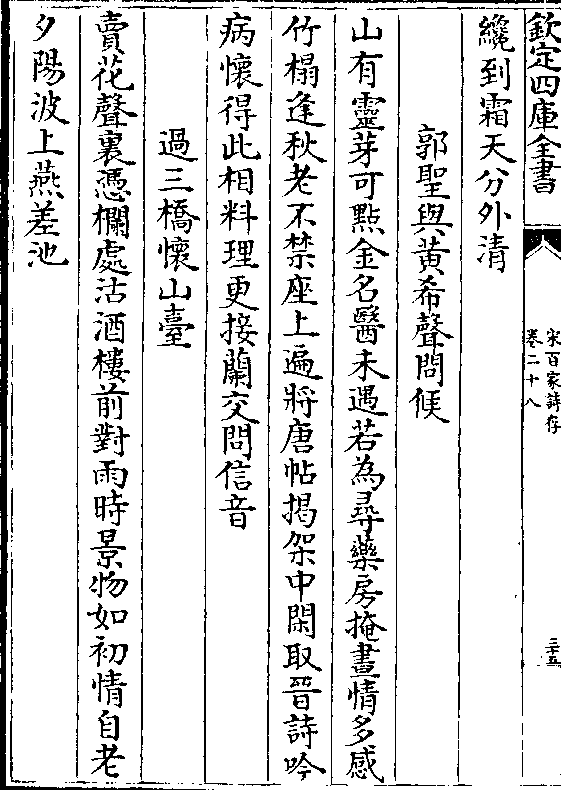 欽定四庫全書
宋百家詩存
卷二十八
三十五
纔到霜天分外清
郭聖與黃希聲問候
山有靈芽可點金名醫未遇若為尋藥房掩晝情多感
竹榻逢秋老不禁座上遍將唐帖揭架中閑取晉詩吟
病懷得此相料理更接蘭交問信音
過三橋懷山臺
賣花聲裏憑欄處沽酒樓前對雨時景物如初情自老
夕陽波上燕差池